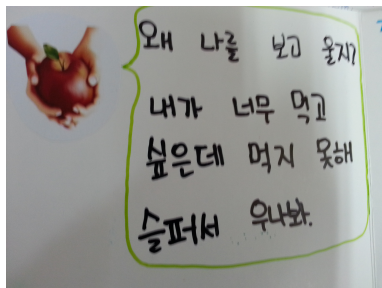 왜 나를 보고 울지?
내가 너무 먹고
싶은데 먹지 못해
슬퍼서 우나봐.